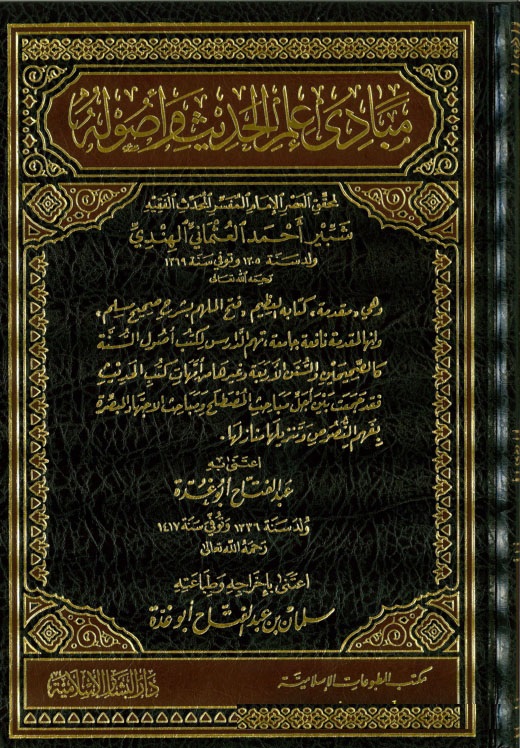 مبادئ علم الحديث وأصوله
لمحقق العصر الإمام المفسر المحدث الفقيه
شبير أحمد العثماني الهندي
ولد سنة ١٣٠٥ وتوفي سنة ١٣٦٩
رحمه الله تعالى
وهي «مقدمة» كتابه العظيم «فتح الملهم بشرح صحيح مسلم»
وإنها لمقدمة نافعة جامعة، تهم الدارس لكتب أصول السنة
كالصحيحين والسنن الأربعة وغيرها من أمهات كتب الحديث
فقد جمعت بين أجل مباحث المصطلح ومباحث الاجتهاد المبصرة
بفهم النصوص وتنزيلها منازلها.
اعتنى به
عبد الفتاح أبو غدة
ولد سنة ١٣٣٦ وتوفي سنة ١٤١٧
رحمه الله تعالى
اعتنى بإخراجه وطباعته
سلمان بن عبد الفتاح أبو غدة
مكتب المطبوعات الإسلامية
دار البشائر الإسلامية